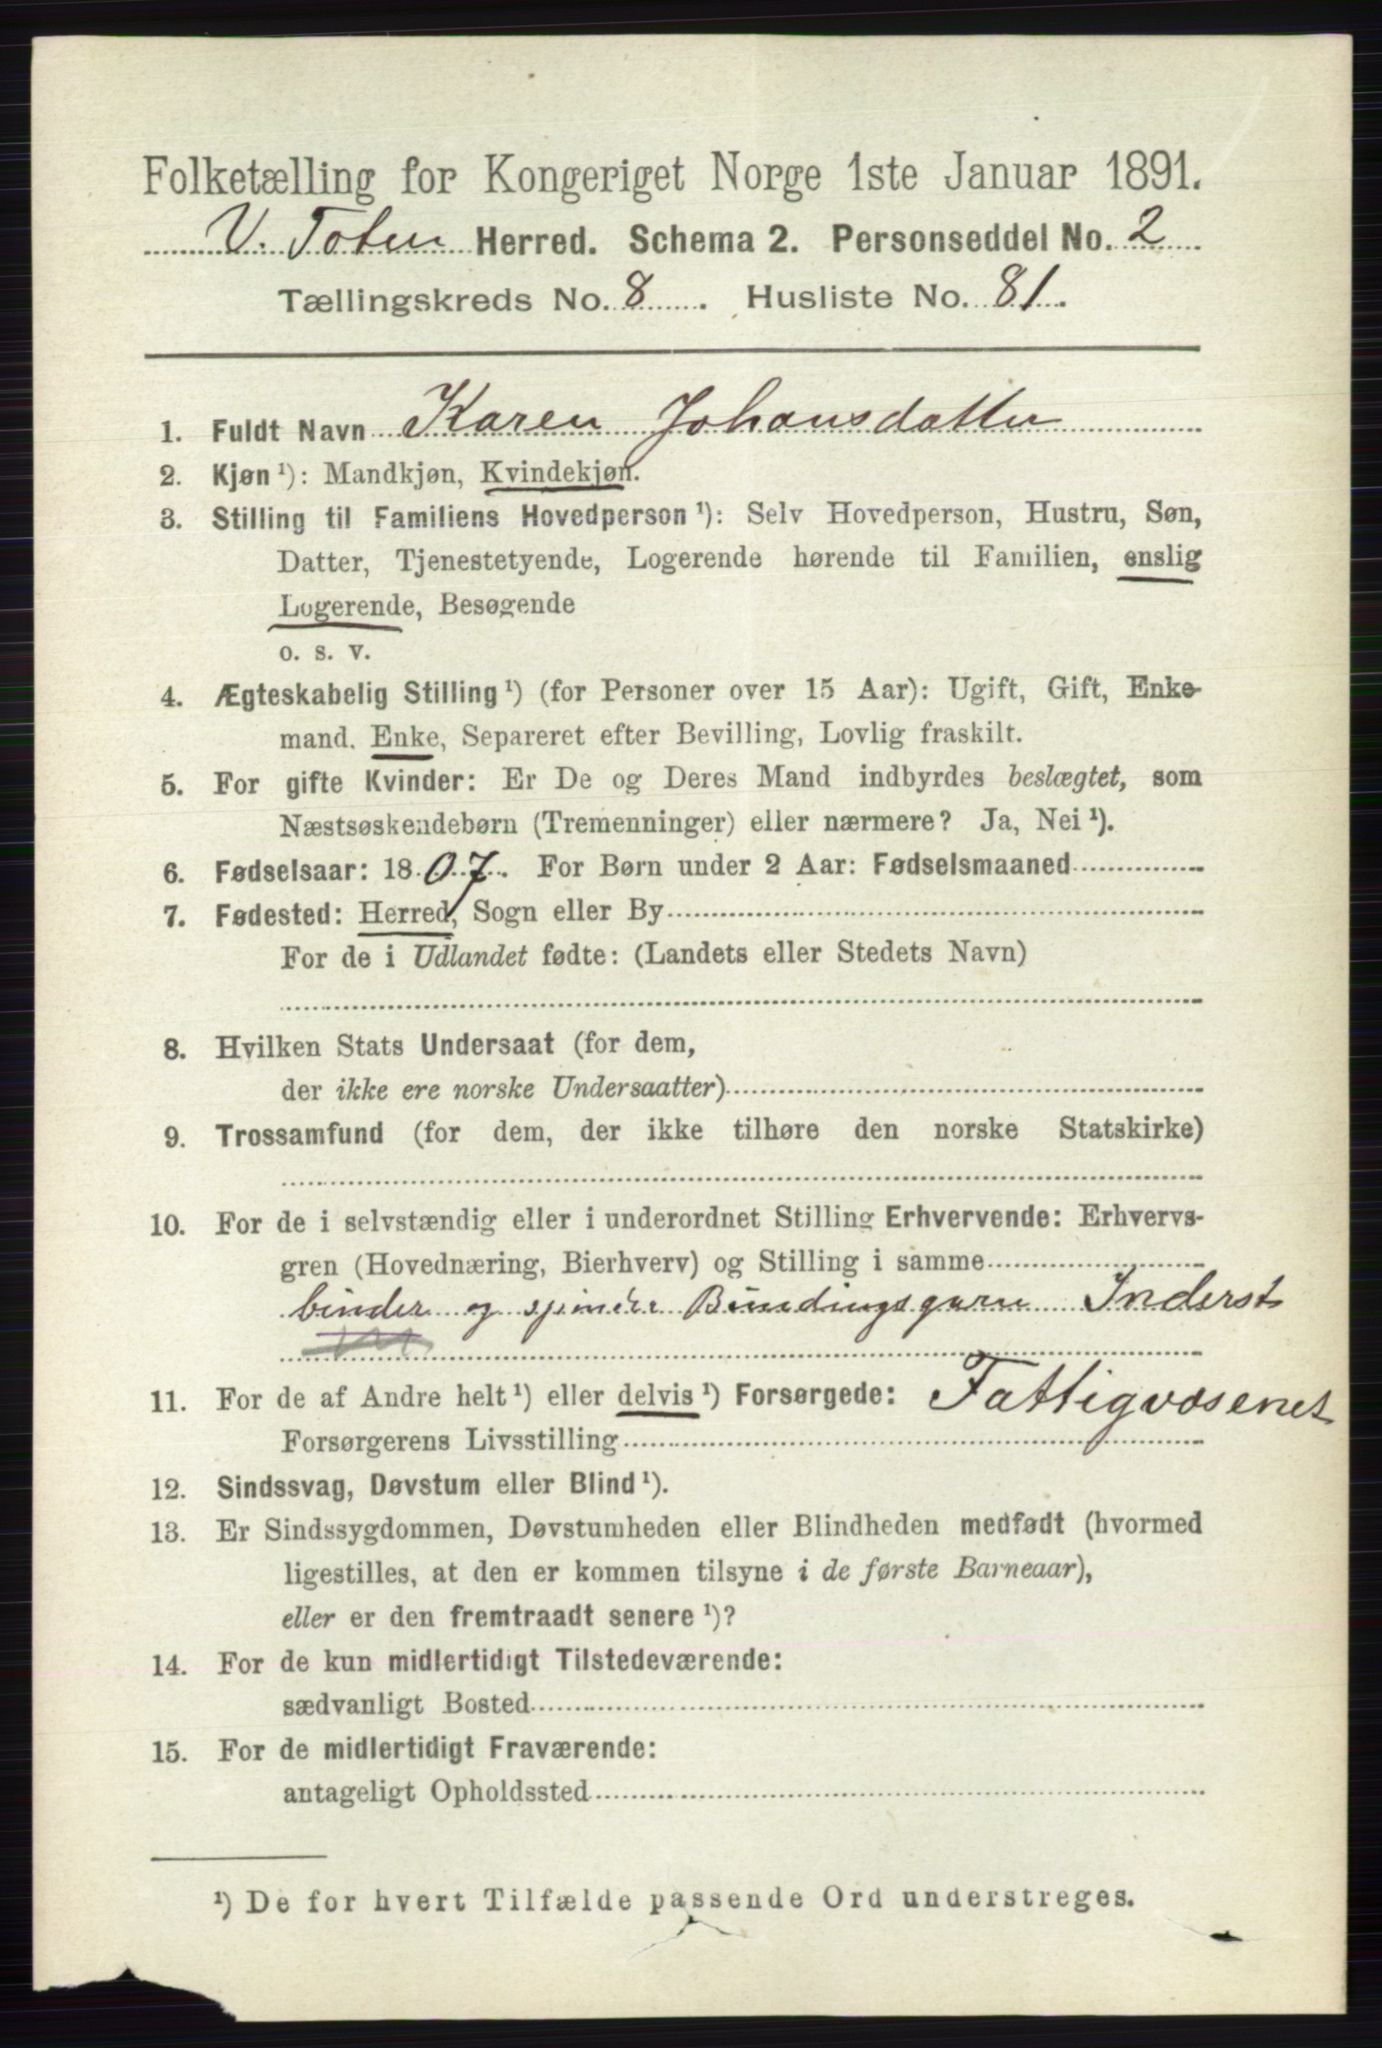 Folketælling for Kongeriget Norge 1ste Januar 1891.
V. Toten Herred. Schema 2. Personseddel No. 2
Tællingskreds No. 8. Husliste No. 81.
1. Fuldt Navn Karen Johansdatter
2. Kjøn ¹): Mandkjøn, Kvindekjøn.
3. Stilling til Familiens Hovedperson ¹): Selv Hovedperson, Hustru, Søn,
Datter, Tjenestetyende, Logerende hørende til Familien, enslig
Logerende, Besøgende
o. s. v.
4. Ægteskabelig Stilling ¹) (for Personer over 15 Aar): Ugift, Gift, Enke-
mand, Enke, Separeret efter Bevilling, Lovlig fraskilt.
5. For gifte Kvinder: Er De og Deres Mand indbyrdes beslægtet, som
Næstsøskendebørn (Tremenninger) eller nærmere? Ja, Nei ¹).
6. Fødselsaar: 1807. For Børn under 2 Aar: Fødselsmaaned
7. Fødested: Herred, Sogn eller By
For de i Udlandet fødte: (Landets eller Stedets Navn)
8. Hvilken Stats Undersaat (for dem,
der ikke ere norske Undersaatter)
9. Trossamfund (for dem, der ikke tilhøre den norske Statskirke)
10. For de i selvstændig eller i underordnet Stilling Erhvervende: Erhvervs-
gren (Hovednæring, Bierhverv) og Stilling i samme
binder og spinder Bindingsgarn Inderst
11. For de af Andre helt ¹) eller delvis ¹) Forsørgede: Fattigvæsenet
Forsørgerens Livsstilling
12. Sindssvag, Døvstum eller Blind ¹).
13. Er Sindssygdommen, Døvstumheden eller Blindheden medfødt (hvormed
ligestilles, at den er kommen tilsyne i de første Barneaar),
eller er den fremtraadt senere ¹)?
14. For de kun midlertidigt Tilstedeværende:
sædvanligt Bosted
15. For de midlertidigt Fraværende:
antageligt Opholdssted
¹) De for hvert Tilfælde passende Ord understreges.